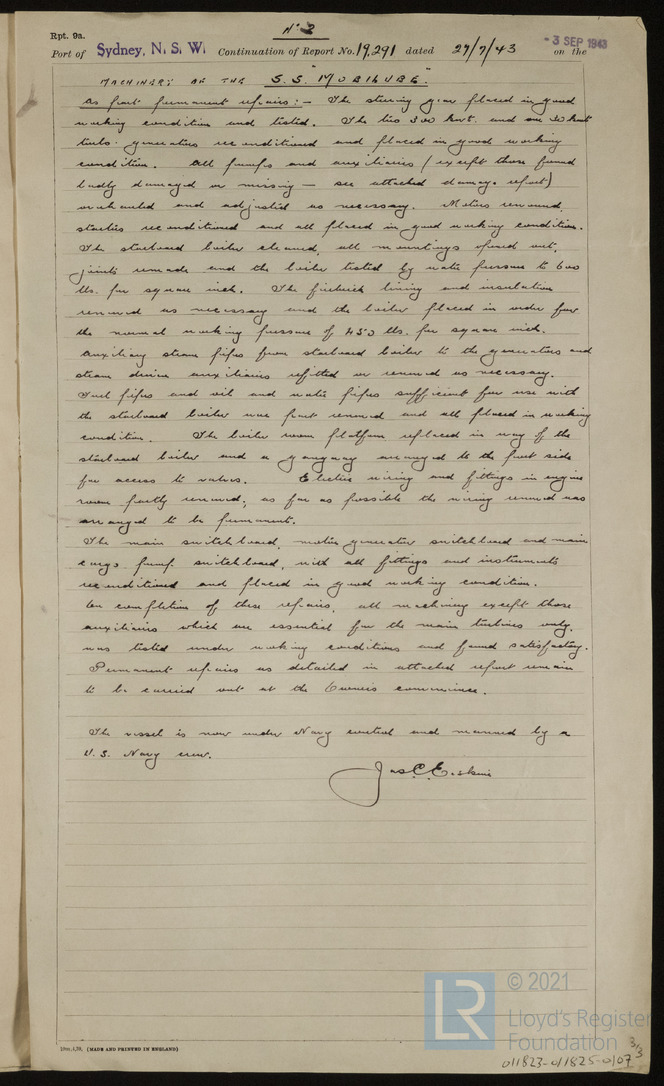 Rpt. 9a.
No 3
Port of Sydney, N. S. W. Continuation of Report No. 19,291 dated 27/7/43 on the
- 3 SEP 1943
MACHINERY OF THE "S.S. MOBILUBE".
As part permanent repairs:— The steering gear placed in good
working condition and tested. The two 300 kwt. and one 30 kwt
turbo. generators reconditioned and placed in good working
condition. All pumps and auxiliaries (except those found
badly damaged or missing — see attached damage report)
overhauled and adjusted as necessary. Motors rewound,
starters reconditioned and all placed in good working condition.
The starboard boiler cleaned, all mountings opened out,
joints remade and the boiler tested by water pressure to 600
lbs. per square inch. The firebrick lining and insulation
renewed as necessary and the boiler placed in order for
the normal working pressure of 450 lbs. per square inch.
Auxiliary steam pipes from starboard boiler to the generators and
steam driven auxiliaries refitted or renewed as necessary.
Fuel pipes and oil and water pipes sufficient for use with
the starboard boiler were part renewed and all placed in working
condition. The boiler room platform replaced in way of the
starboard boiler and a gangway arranged to the port side
for access to valves. Electric wiring and fittings in engine
room partly renewed; as far as possible the wiring renewed was
arranged to be permanent.
The main switchboard, motor generator switchboard and main
cargo pump switchboard, with all fittings and instruments
reconditioned and placed in good working condition.
On completion of these repairs, all machinery except those
auxiliaries which are essential for the main turbines only,
was tested under working conditions and found satisfactory.
Permanent repairs as detailed in attached report remain
to be carried out at the Owners convenience.
The vessel is now under Navy control and manned by a
U.S. Navy crew.
Jas C. Erskine
10m.4.39. (MADE AND PRINTED IN ENGLAND)
LR
© 2021
Lloyd's Register
Foundation
3/3
011823-011825-0107